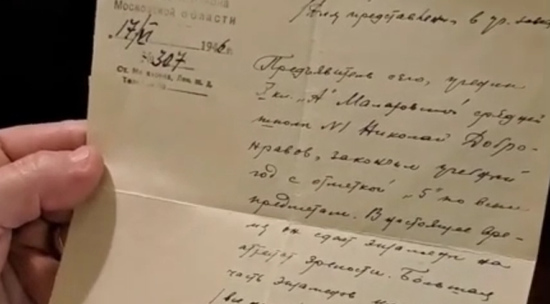 Московской области
17/VI 1946 г.
№ 307
Ст.
(Для представлен. в
Предъявитель сего, ученик
X кл. "А" Малаховской средней
школы N1 Николай Добро-
нравов, закончил учебный
год с отметкой "5" по всем
предметам. В настоящее вре-
мя он сдает экзамены на
аттестат зрелости. Большая
часть экзаменов